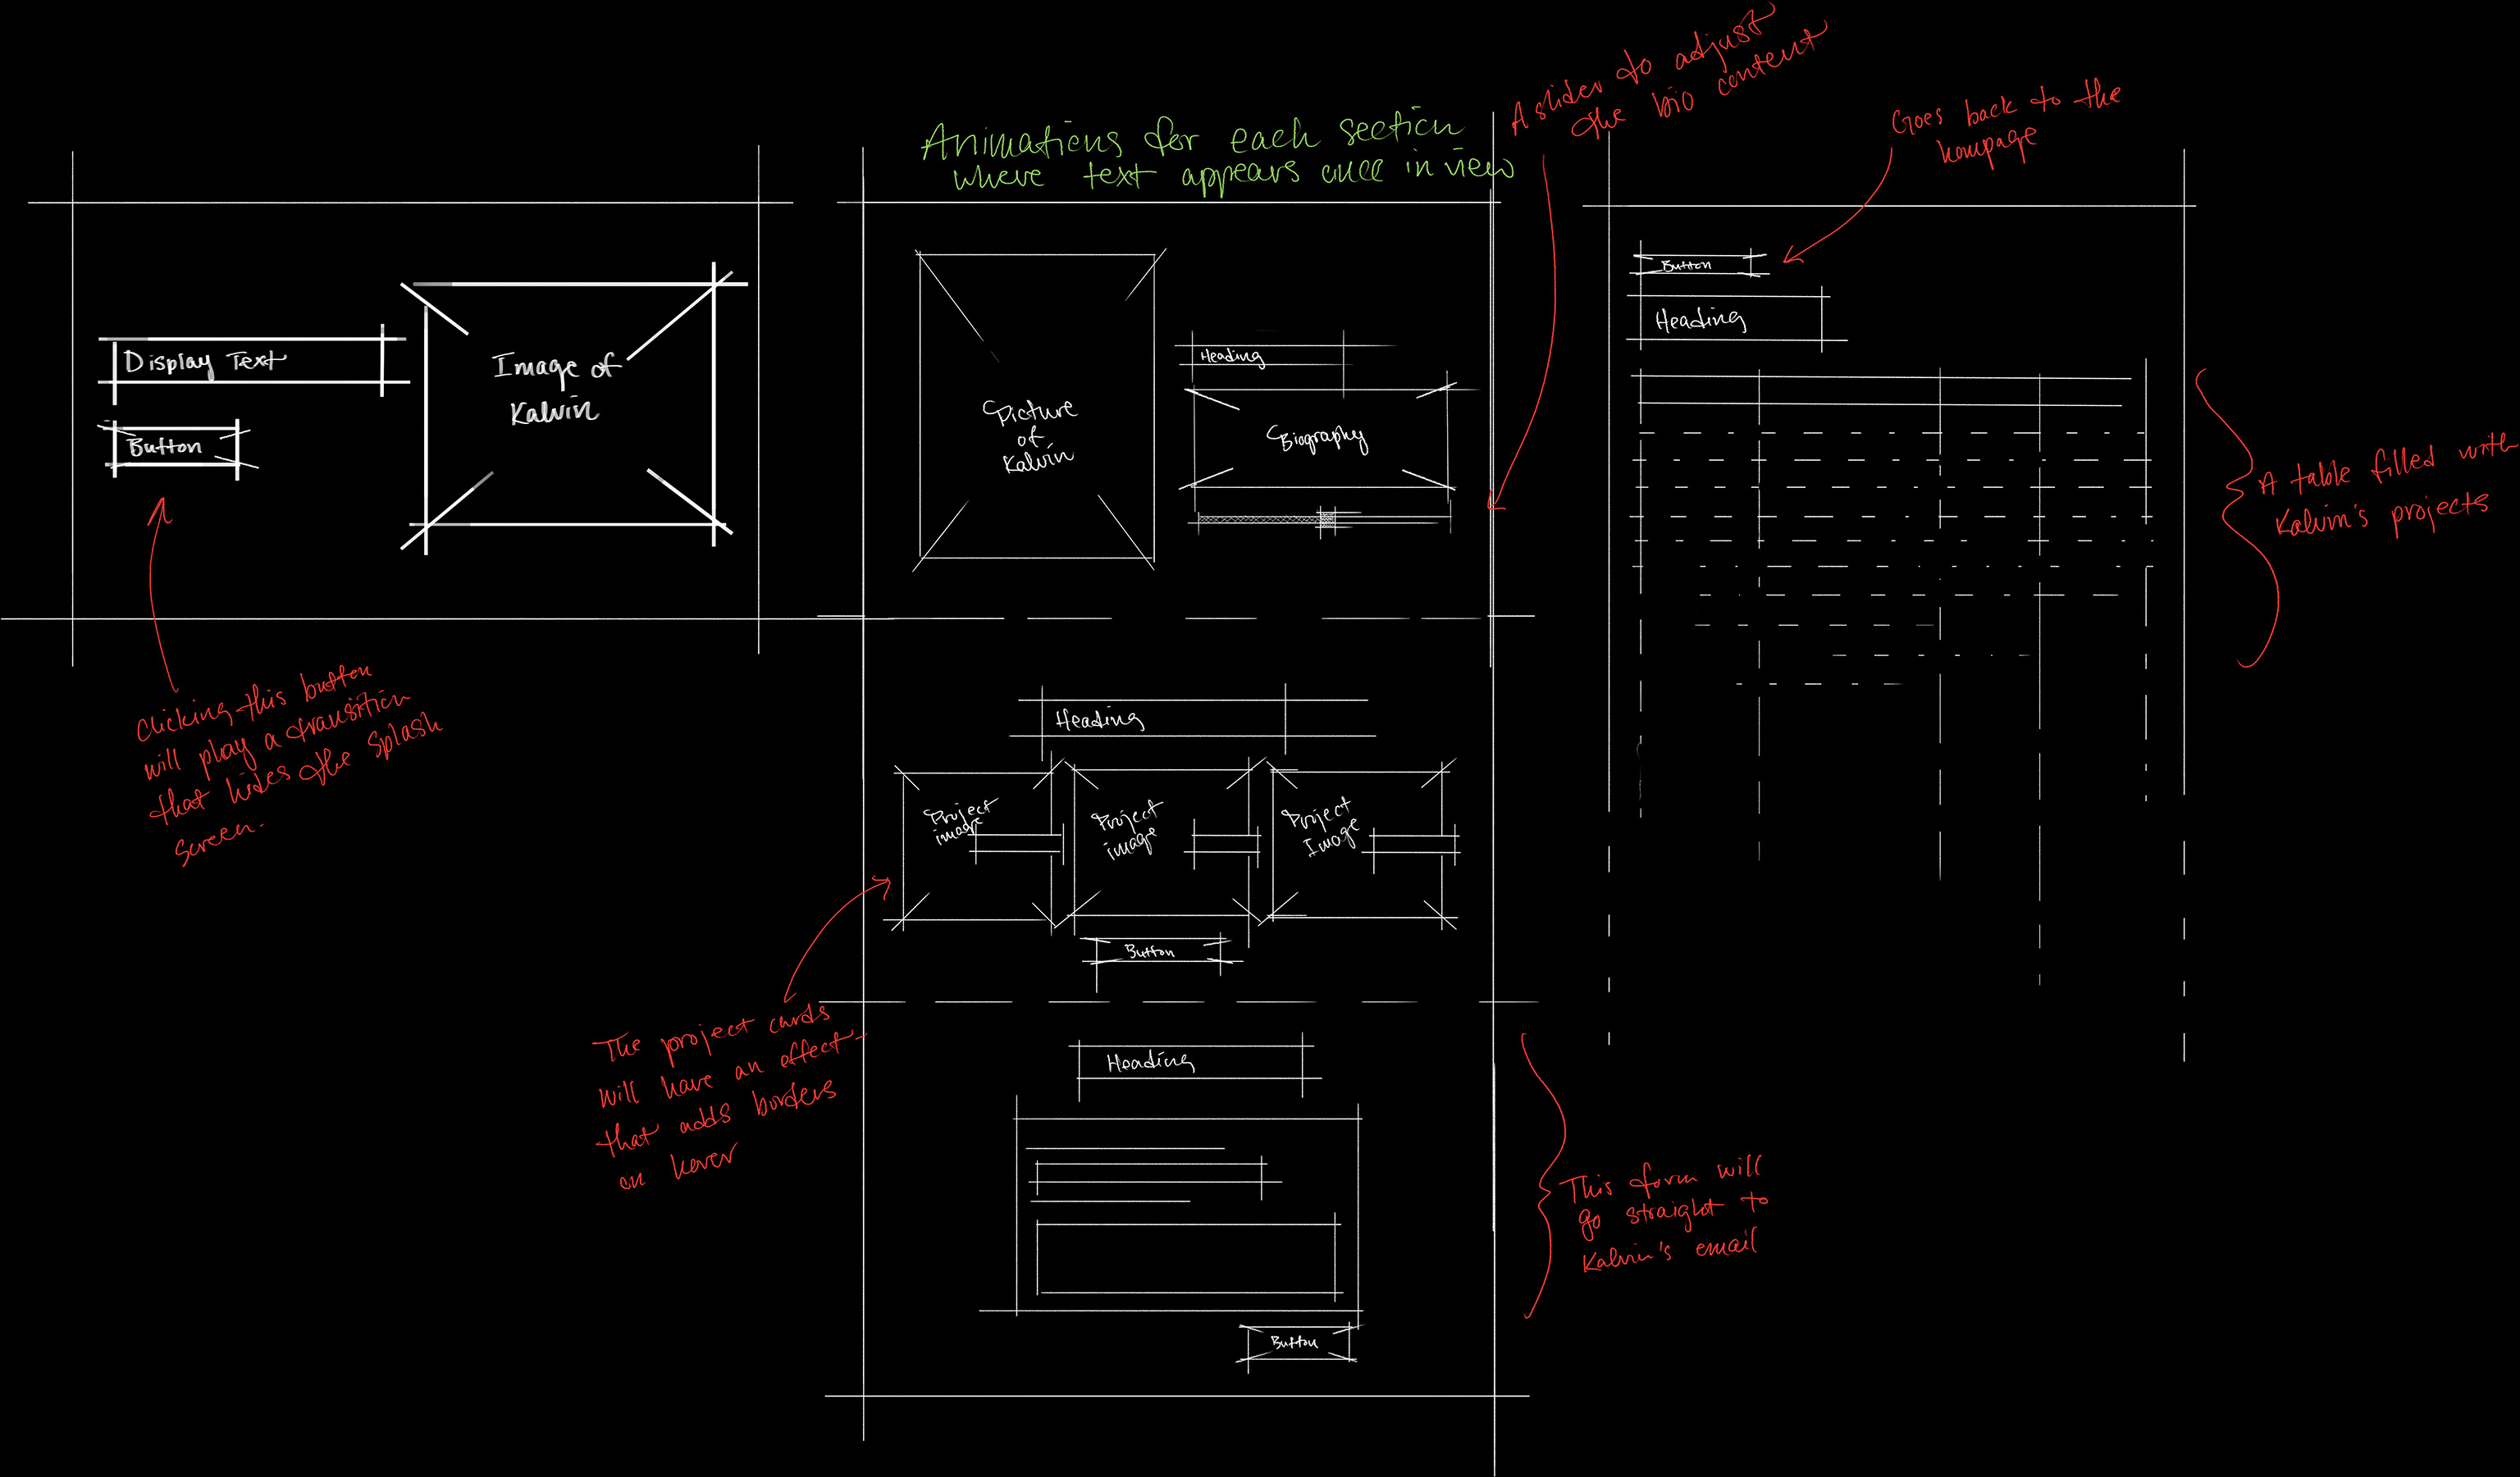 Display Text
Button
Image of
Kalvin
Clicking this button
will play a transition
that hides the splash
screen.
Animations for each section
where text appears once in view
A slider to adjust
the bio content
Picture
of
Kalvin
Heading
Biography
Heading
Project
image
Project
image
Project
Image
Button
The project cards
will have an effect
that adds borders
on hover
Heading
Button
This form will
go straight to
Kalvin's email
Goes back to the
hompage
Button
Heading
A table filled with
Kalvin's projects